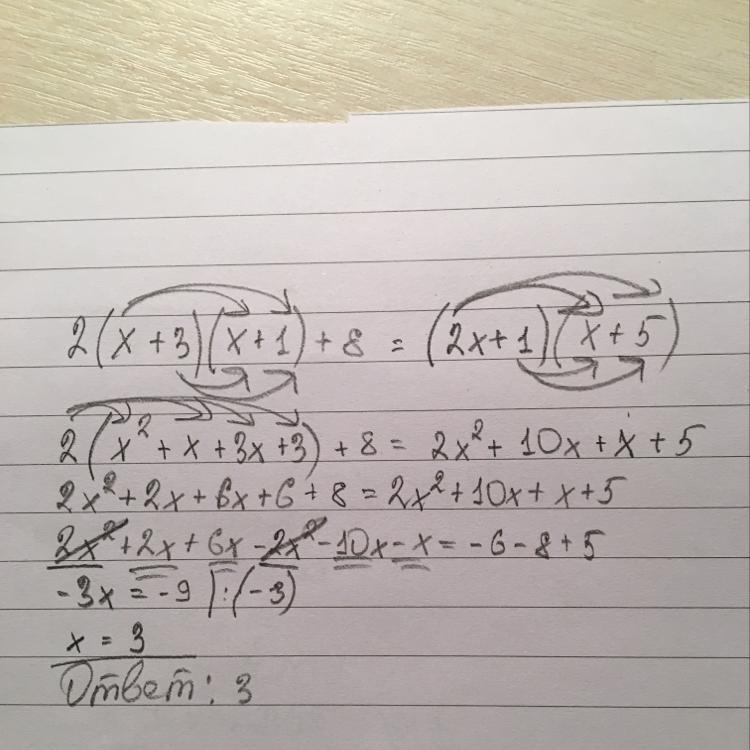 2(x+3)(x+1)+8 = (2x+1)(x+5)
2(x²+x+3x+3)+8 = 2x²+10x+x+5
2x²+2x+6x+6+8=2x²+10x+x+5
2x²+2x+6x-2x²-10x-x=-6-8+5
-3x = -9 |:(-3)
x = 3
Ответ: 3